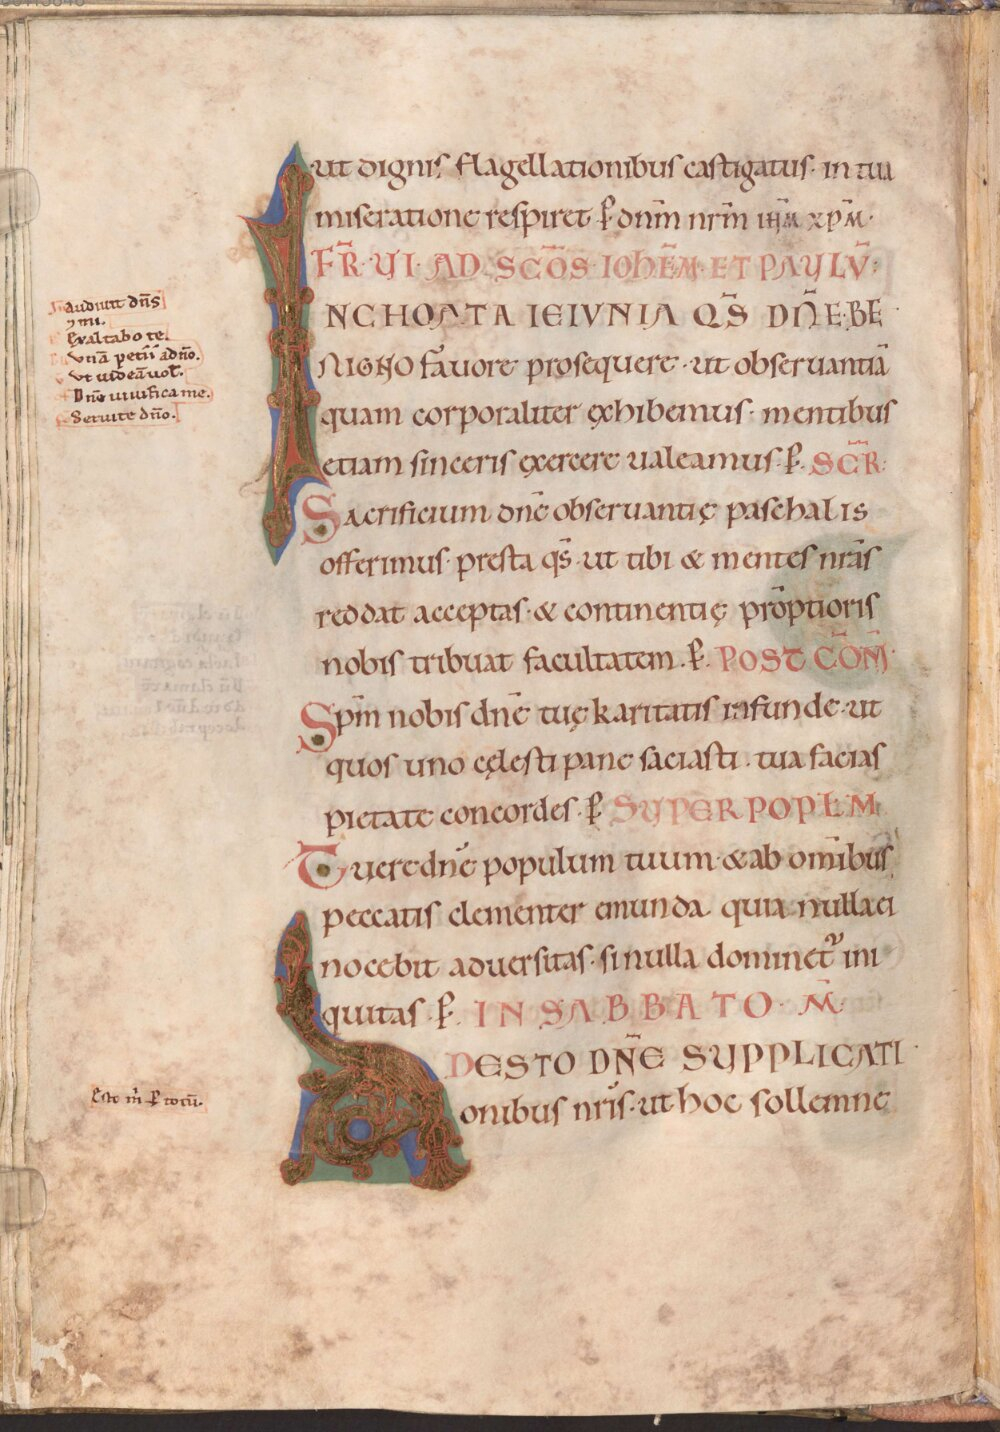 ut dignis flagellationibus castigatus· in tua
miseratione respiret ꝑ dnm̄ nrm̄ ihm̄ xpm̄·
FR̄· VI· AD SCŌS IOHĒM· ET PAVLV̄·
INCHOATA IEIVNIA QS̄ DÑE· BE
NIGNO fauore prosequere · ut obseruantiā
quam corporaliter ęxhibemus· mentibus
etiam sinceris ęxercere ualeamus· ꝑ. SECR̄·
Sacrificium dnē obseruantię paschalis
offerimus· presta qs̄· ut tibi & mentes nrās
reddat acceptas· & continentię prōptioris
nobis tribuat facultatem. ꝑ. POST CŌM̄
Spm̄ nobis dnē tuę karitatis infunde· ut
quos uno cęlesti pane saciasti· tua facias
pietate concordes· ꝑ SUPER POPŁM
Tuere dnē populum tuum· & ab omībus
peccatis clementer emunda· quia nulla ei
nocebit aduersitas· si nulla dominet᷑ ini
quitas· ꝑ. IN SABBATO· M̄·
ADESTO DÑE SUPPLICATI
onibus nrīs· ut hoc sollemne
Audiuit dñs
⁊ mi.
Exaltabo te.
Vnā petii adño.
Vt uideā uol̄.
Dnē uiuifica me.
Seruite dño.
Esto m̄ ꝑ totū.